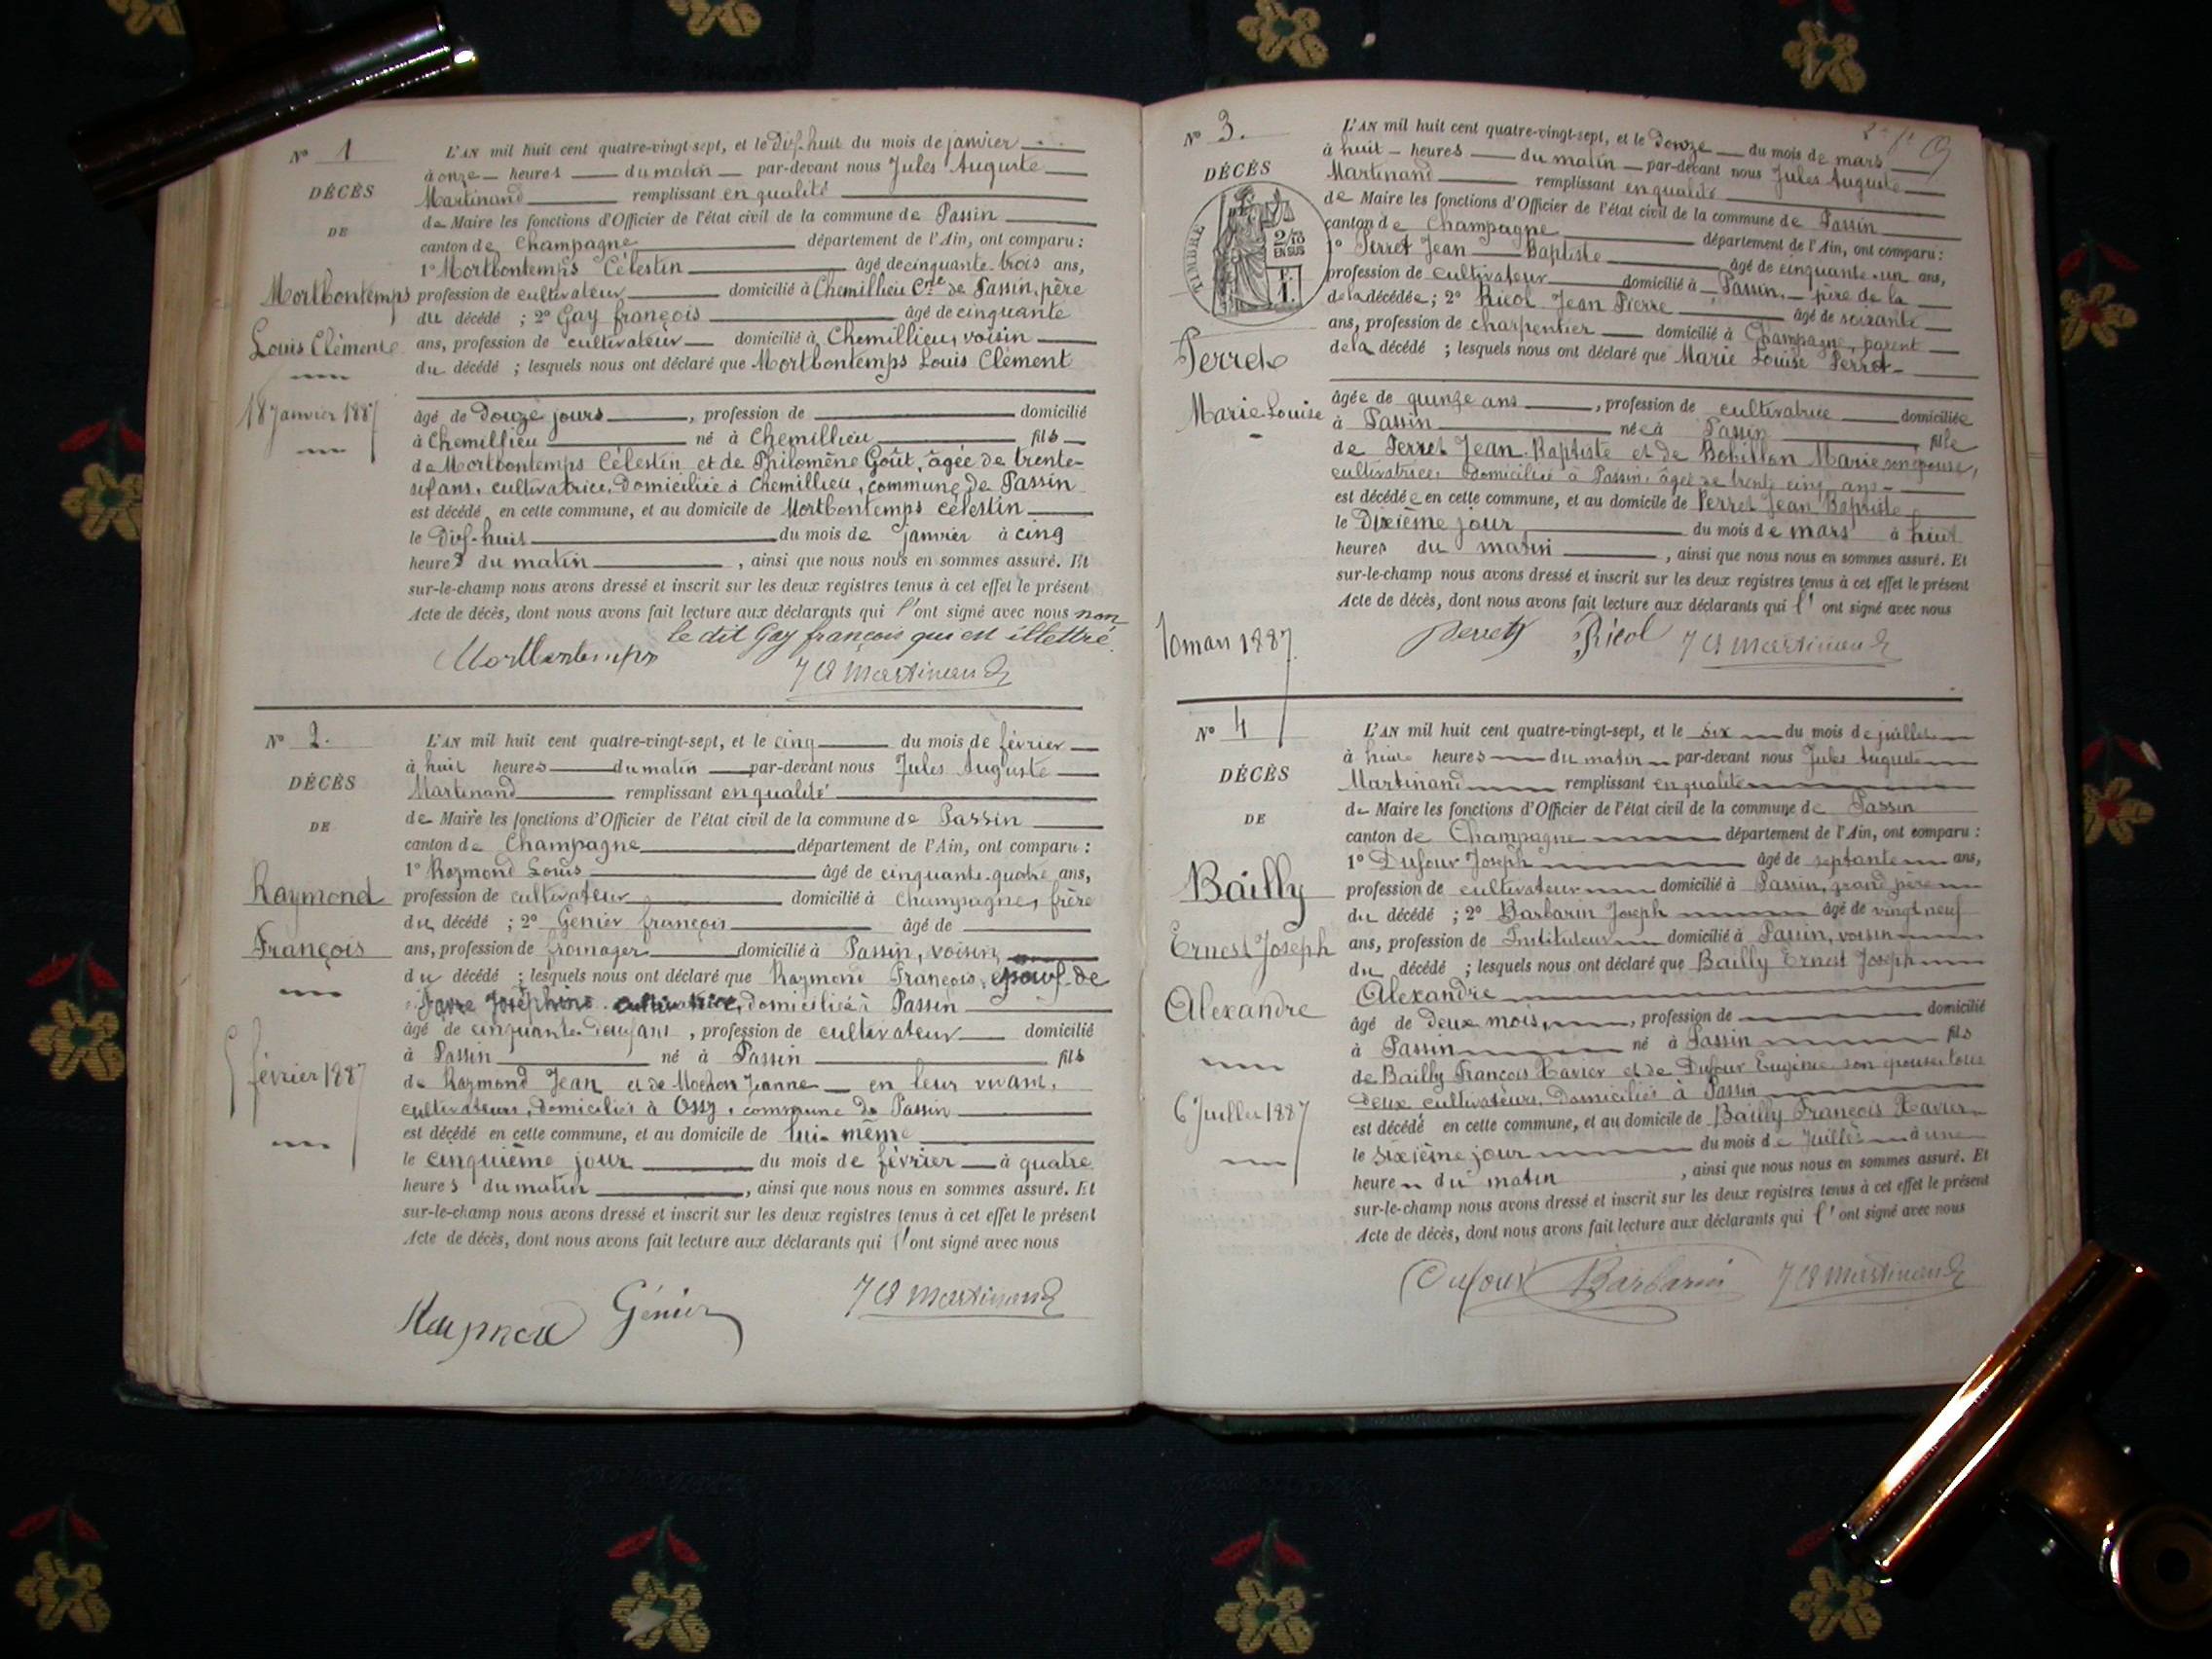 N° 1
DÉCÈS
DE
Mortbontemps
Louis Clément
18 Janvier 1887
L'AN mil huit cent quatre-vingt-sept, et le dix-huit du mois de janvier
à onze heures du matin par-devant nous Jules Auguste
Martinand remplissant en qualité
de Maire les fonctions d'Officier de l'état civil de la commune de Passin
canton de Champagne département de l'Ain, ont comparu :
1° Mortbontemps Célestin âgé de cinquante-trois ans,
profession de cultivateur domicilié à Chemillieu Cne de Passin, père
du décédé ; 2° Gay françois âgé de cinquante
ans, profession de cultivateur domicilié à Chemillieu, voisin
du décédé ; lesquels nous ont déclaré que Mortbontemps Louis Clément
âgé de douze jours, profession de domicilié
à Chemillieu né à Chemillieu fils
de Mortbontemps Célestin et de Philomène Goût, âgée de trente-
sept ans, cultivatrice, domiciliée à Chemillieu, commune de Passin
est décédé en cette commune, et au domicile de Mortbontemps célestin
le dix-huit du mois de janvier à cinq
heures du matin, ainsi que nous nous en sommes assuré. Et
sur-le-champ nous avons dressé et inscrit sur les deux registres tenus à cet effet le présent
Acte de décès, dont nous avons fait lecture aux déclarants qui l'ont signé avec nous non
le dit Gay françois qui est illettré.
Mortbontemps J A Martinand
N° 2.
DÉCÈS
DE
Raymond
François
5 février 1887
L'AN mil huit cent quatre-vingt-sept, et le cinq du mois de février
à huit heures du matin par-devant nous Jules Auguste
Martinand remplissant en qualité
de Maire les fonctions d'Officier de l'état civil de la commune de Passin
canton de Champagne département de l'Ain, ont comparu :
1° Raymond Louis âgé de cinquante-quatre ans,
profession de cultivateur domicilié à Champagne, frère
du décédé ; 2° Génier françois âgé de
ans, profession de fromager domicilié à Passin, voisin
du décédé ; lesquels nous ont déclaré que Raymond François, époux de
Josephine cultivatrice, domiciliée à Passin
âgé de cinquante ans, profession de cultivateur domicilié
à Passin né à Passin fils
de Raymond Jean et de Mochon Jeanne en leur vivant,
cultivateurs, domiciliés à Ossy, commune de Passin
est décédé en cette commune, et au domicile de lui-même
le cinquième jour du mois de février à quatre
heures du matin, ainsi que nous nous en sommes assuré. Et
sur-le-champ nous avons dressé et inscrit sur les deux registres tenus à cet effet le présent
Acte de décès, dont nous avons fait lecture aux déclarants qui l'ont signé avec nous
Raymond Génier J A Martinand
N° 3.
DÉCÈS
TIMBRE
2/10
EN SUS
Perret
Marie Louise
10 mars 1887
L'AN mil huit cent quatre-vingt-sept, et le douze du mois de mars
à huit heures du matin par-devant nous Jules Auguste
Martinand remplissant en qualité
de Maire les fonctions d'Officier de l'état civil de la commune de Passin
canton de Champagne département de l'Ain, ont comparu :
1° Perret Jean Baptiste âgé de cinquante-un ans,
profession de cultivateur domicilié à Passin, père de la
de la décédée ; 2° Ricol Jean Pierre âgé de soixante
ans, profession de charpentier domicilié à Champagne, parent
de la décédé ; lesquels nous ont déclaré que Marie Louise Perret
âgée de quinze ans, profession de cultivatrice domiciliée
à Passin née à Passin fille
de Perret Jean-Baptiste et de Bobillon Marie son épouse,
cultivatrice, domiciliée à Passin, âgée de trente cinq ans
est décédée en cette commune, et au domicile de Perret Jean Baptiste
le Dixième jour du mois de mars à huit
heures du matin, ainsi que nous nous en sommes assuré. Et
sur-le-champ nous avons dressé et inscrit sur les deux registres tenus à cet effet le présent
Acte de décès, dont nous avons fait lecture aux déclarants qui l'ont signé avec nous
Perret Ricol J A Martinand
N° 4
DÉCÈS
DE
Bailly
Ernest Joseph
Alexandre
6 Juillet 1887
L'AN mil huit cent quatre-vingt-sept, et le six du mois de juillet
à huit heures du matin par-devant nous Jules Auguste
Martinand remplissant en qualité
de Maire les fonctions d'Officier de l'état civil de la commune de Passin
canton de Champagne département de l'Ain, ont comparu :
1° Dufour Joseph âgé de septante ans,
profession de cultivateur domicilié à Passin, grand père
du décédé ; 2° Barbarin Joseph âgé de vingt neuf
ans, profession de Instituteur domicilié à Passin, voisin
du décédé ; lesquels nous ont déclaré que Bailly Ernest Joseph
Alexandre
âgé de deux mois, profession de domicilié
à Passin né à Passin fils
de Bailly François Xavier et de Dufour Eugénie son épouse tous
deux cultivateurs, domiciliés à Passin
est décédé en cette commune, et au domicile de Bailly François Xavier
le sixième jour du mois de Juillet à une
heure du matin, ainsi que nous nous en sommes assuré. Et
sur-le-champ nous avons dressé et inscrit sur les deux registres tenus à cet effet le présent
Acte de décès, dont nous avons fait lecture aux déclarants qui l'ont signé avec nous
Dufour Barbarin J A Martinand